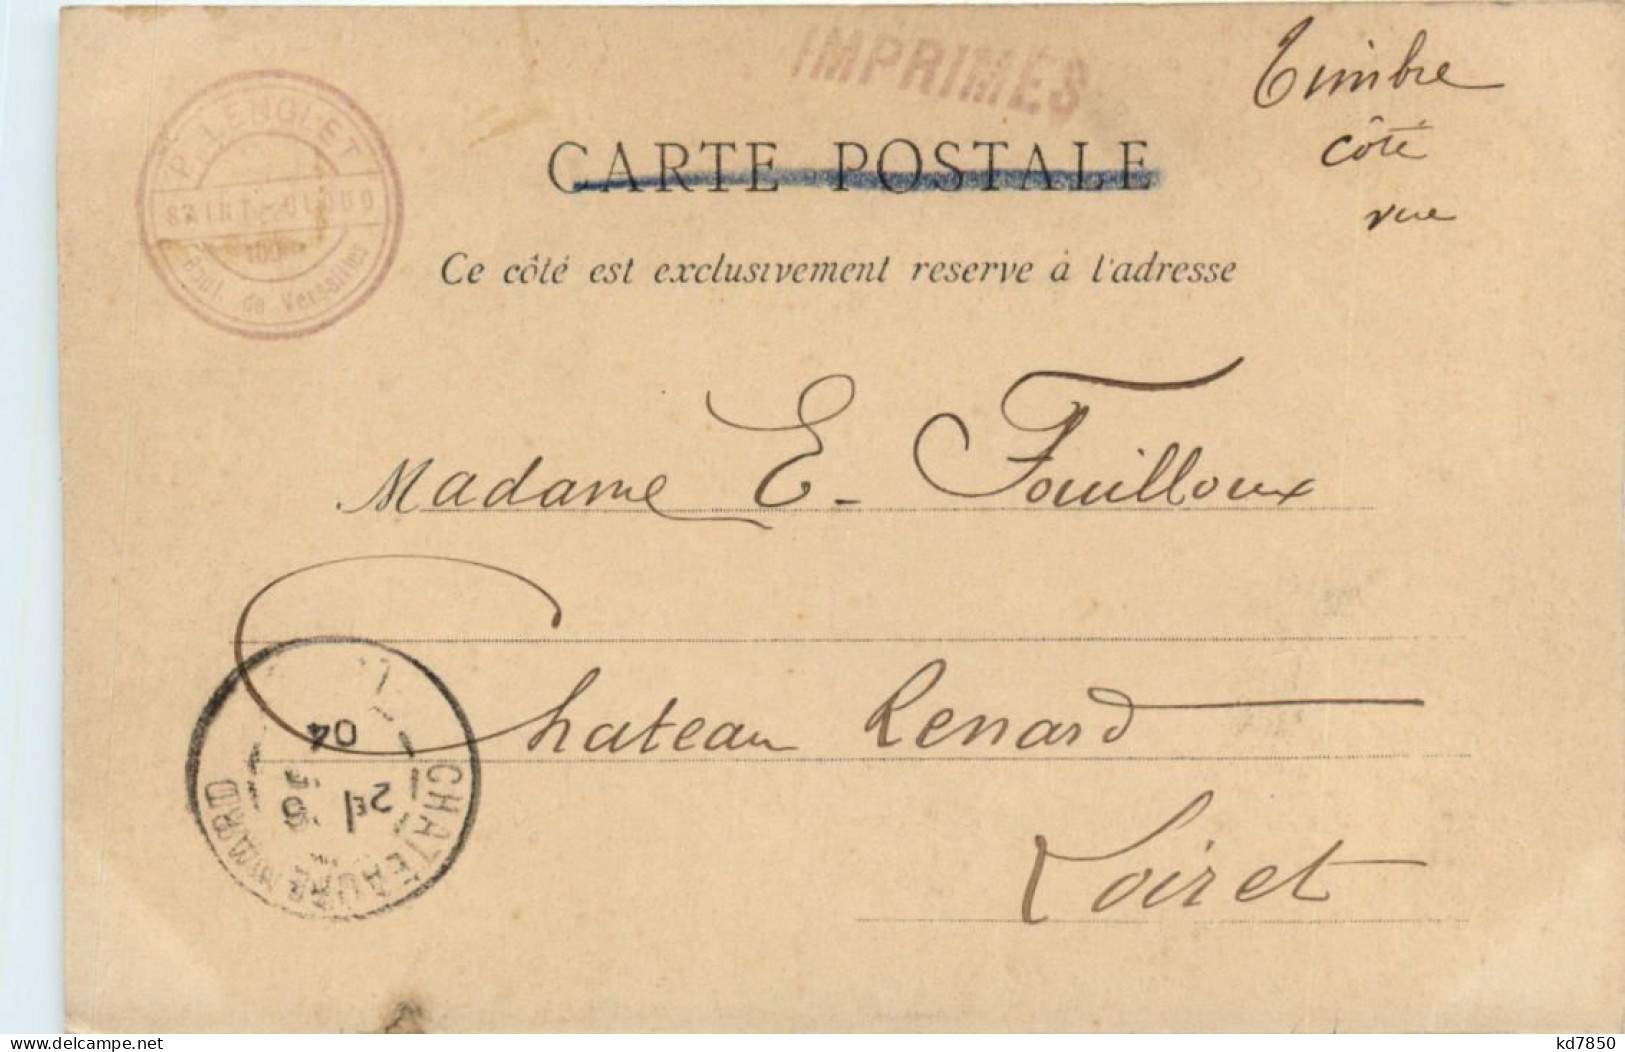 IMPRIMÉS
Timbre
côté
vue
P. LENGLET
SAINT-CLOUD
Boul. de Versailles
CARTE POSTALE
Ce côté est exclusivement reserve à l'adresse
Madame E. Fouilloux
Chateau Renard
Loiret
CHATEAURENARD
2E
04
kd7850